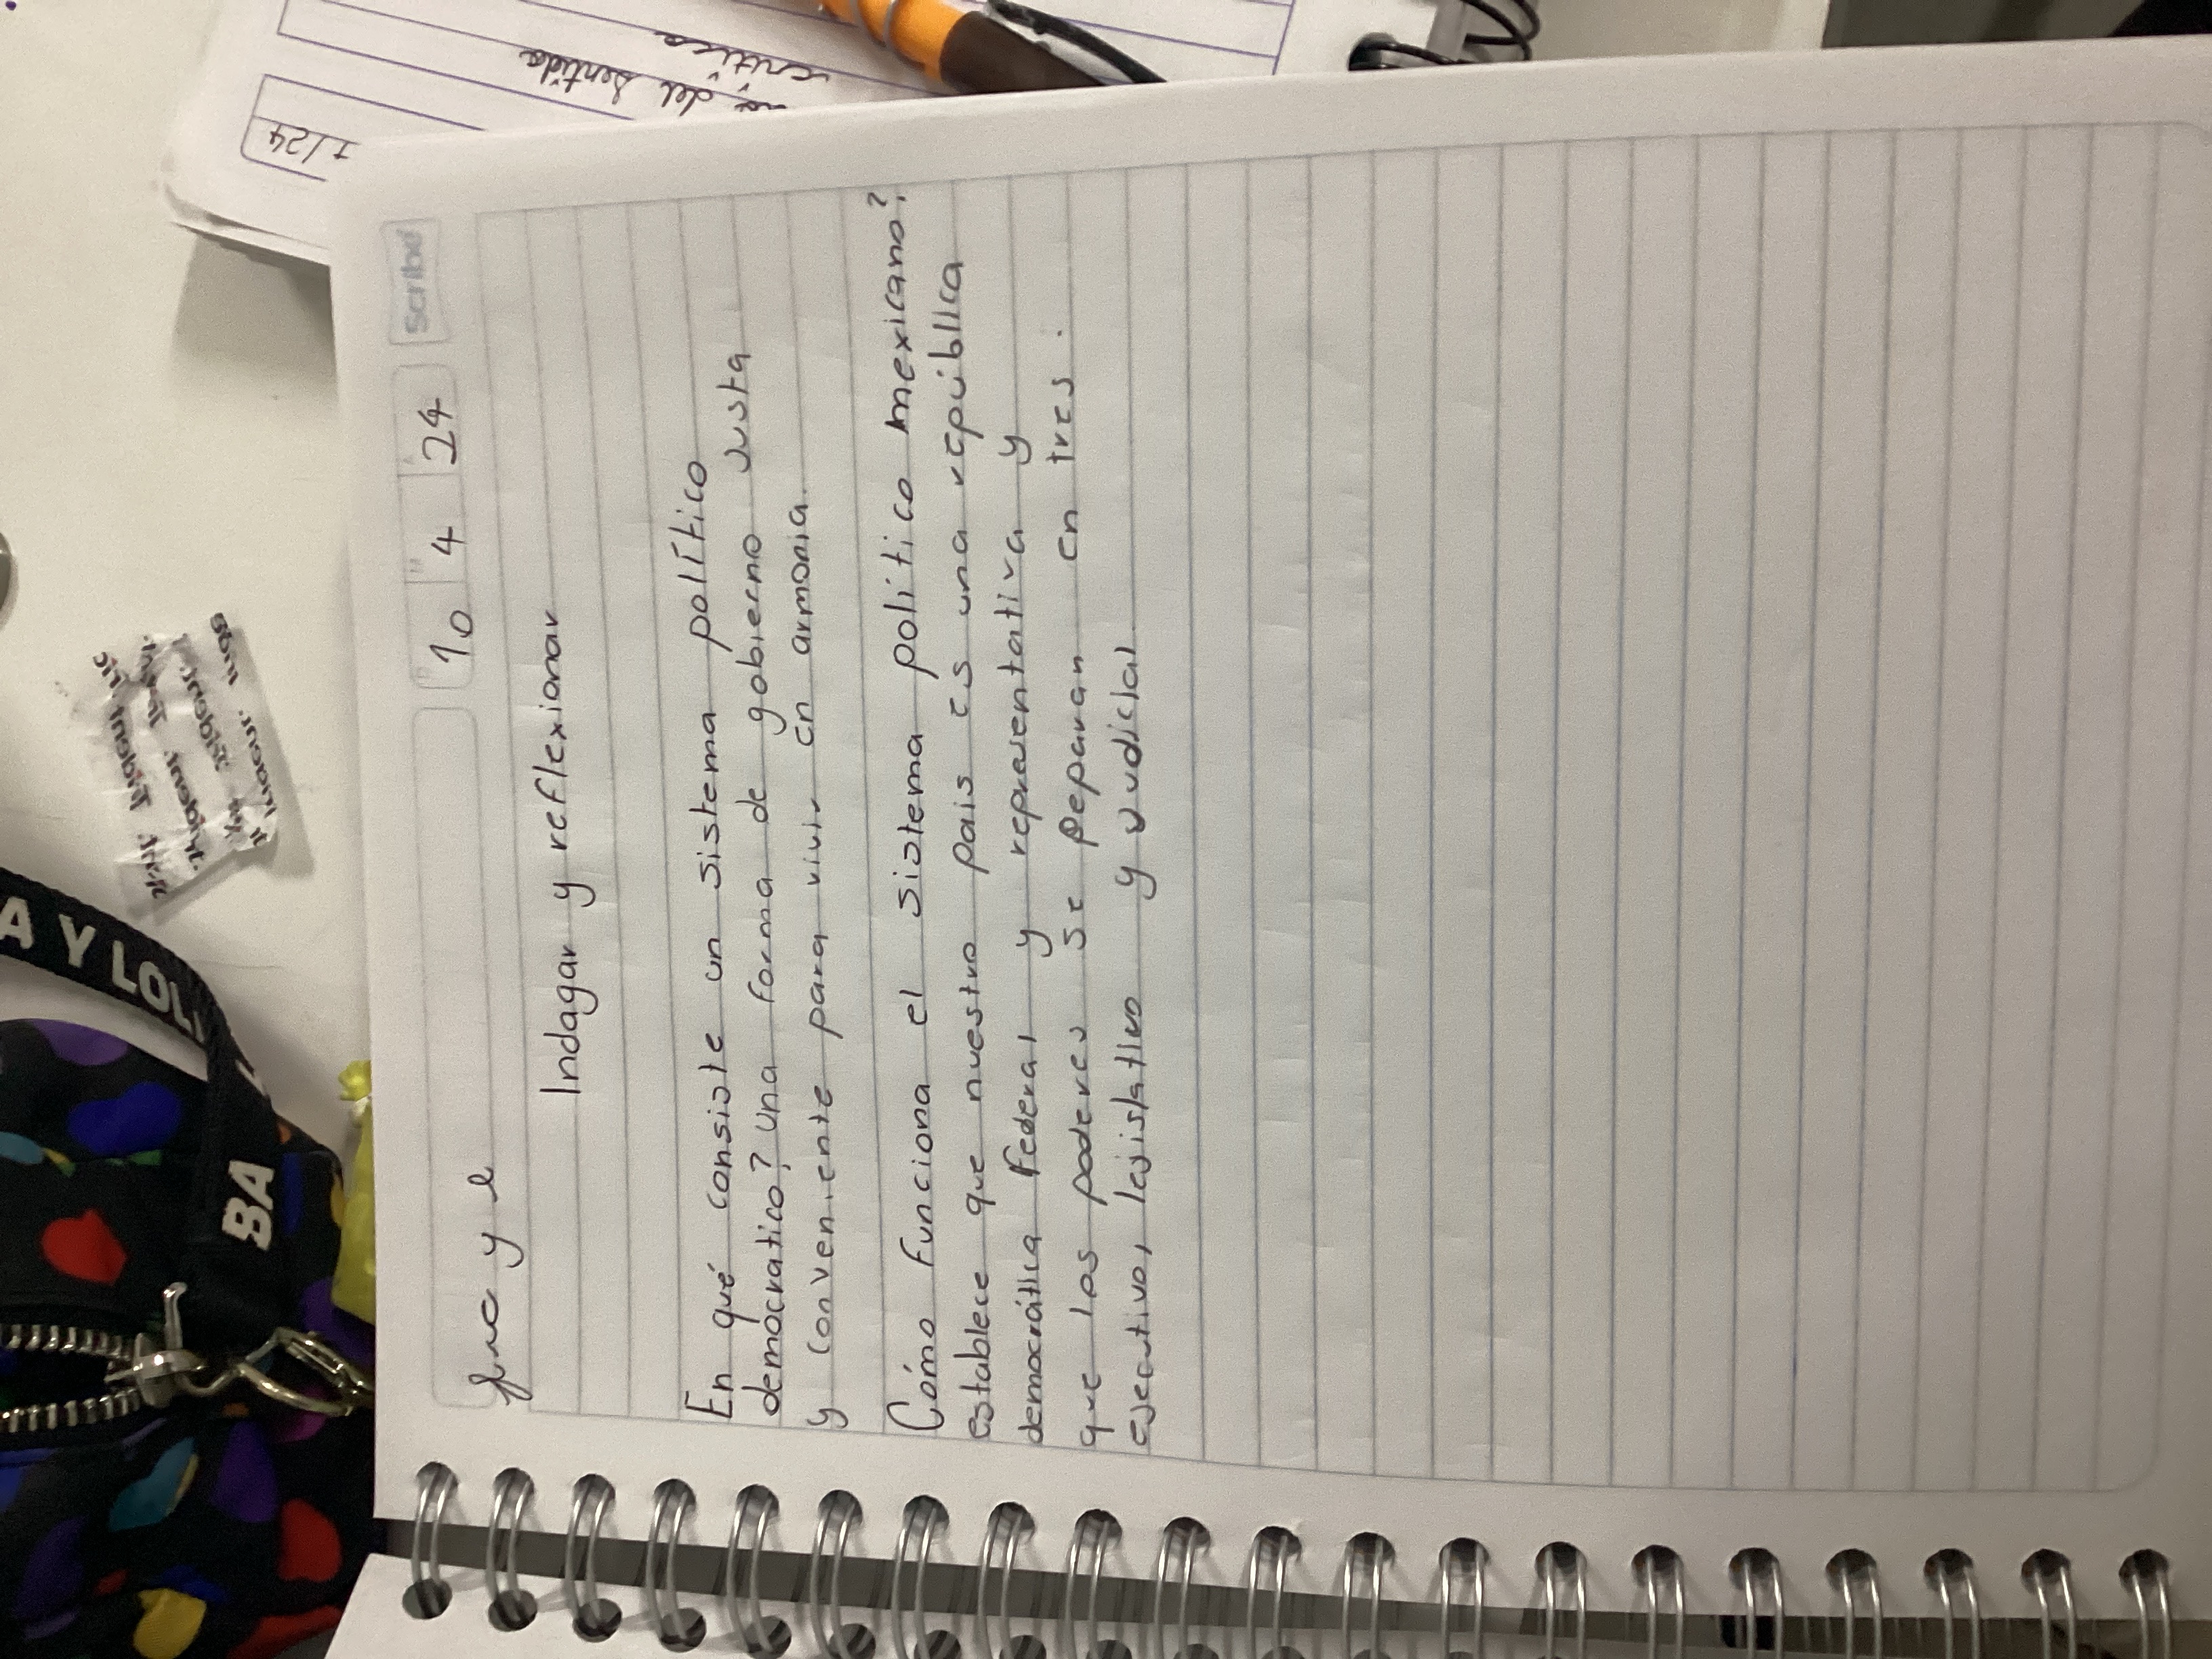 10 4 24 Scribe
fnc y e
Indagar y reflexionar
En qué consiste un sistema político
democratico? una forma de gobierno justa
y conveniente para vivir en armonia.
Cómo funciona el sistema politico mexicano?
establece que nuestro pais es una república
democrática federal y representativa y
que los poderes se peparan en tres:
ejecutivo, legislativo y judicial
1/24
del sentido
critica
A Y LOL
BA
Trident